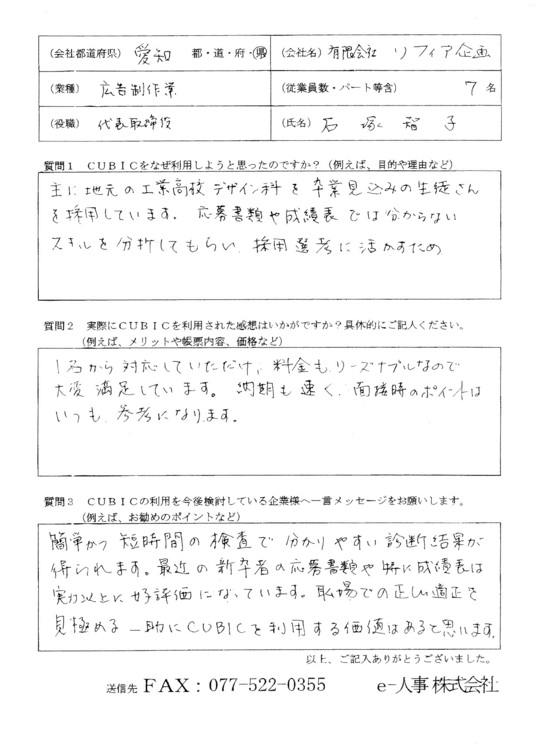 (会社都道府県) 愛知 都・道・府・県 (会社名) 有限会社 リフィア企画
(業種) 広告制作業 (従業員数・パート等含) 7 名
(役職) 代表取締役 (氏名) 石塚 智子
質問1 CUBICをなぜ利用しようと思ったのですか?(例えば、目的や理由など)
主に地元の工業高校デザイン科を卒業見込みの生徒さん
を採用しています。応募書類や成績表では分からない
スキルを分析してもらい、採用選考に活かすため
質問2 実際にCUBICを利用された感想はいかがですか?具体的にご記入ください。
(例えば、メリットや帳票内容、価格など)
1名から対応していただけ、料金もリーズナブルなので
大変満足しています。納期も速く、面接時のポイントは
いつも参考になります。
質問3 CUBICの利用を今後検討している企業様へ一言メッセージをお願いします。
(例えば、お勧めのポイントなど)
簡単かつ短時間の検査で分かりやすい診断結果が
得られます。最近の新卒者の応募書類や特に成績表は
実力以上に好評価になっています。職場での正しい適正を
見極める一助にCUBICを利用する価値はあると思います。
以上、ご記入ありがとうございました。
送信先 FAX:077-522-0355 e-人事株式会社